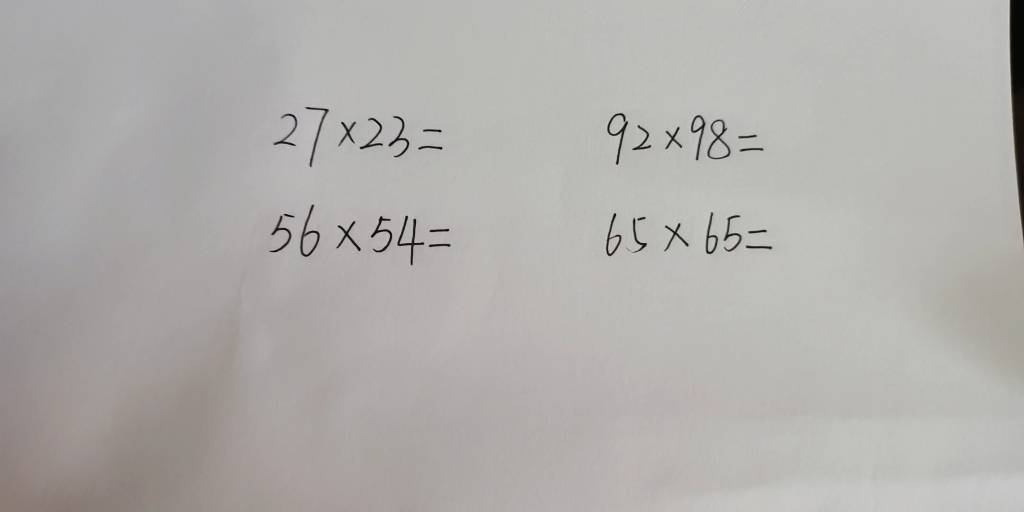 27×23= 92×98=
56×54= 65×65=